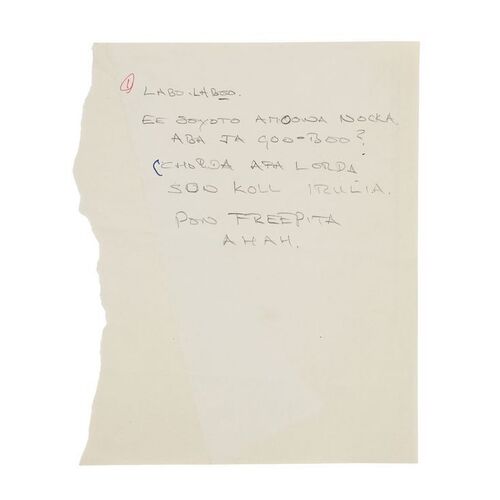 1
LABO.LABOO.
EE SOYOTO AMOOWA NOCKA
ABA JA GOO-BOO?
CHORDA APA LORDA
SON KOLL IRULIA.
PON FREEPITA
AHAH.